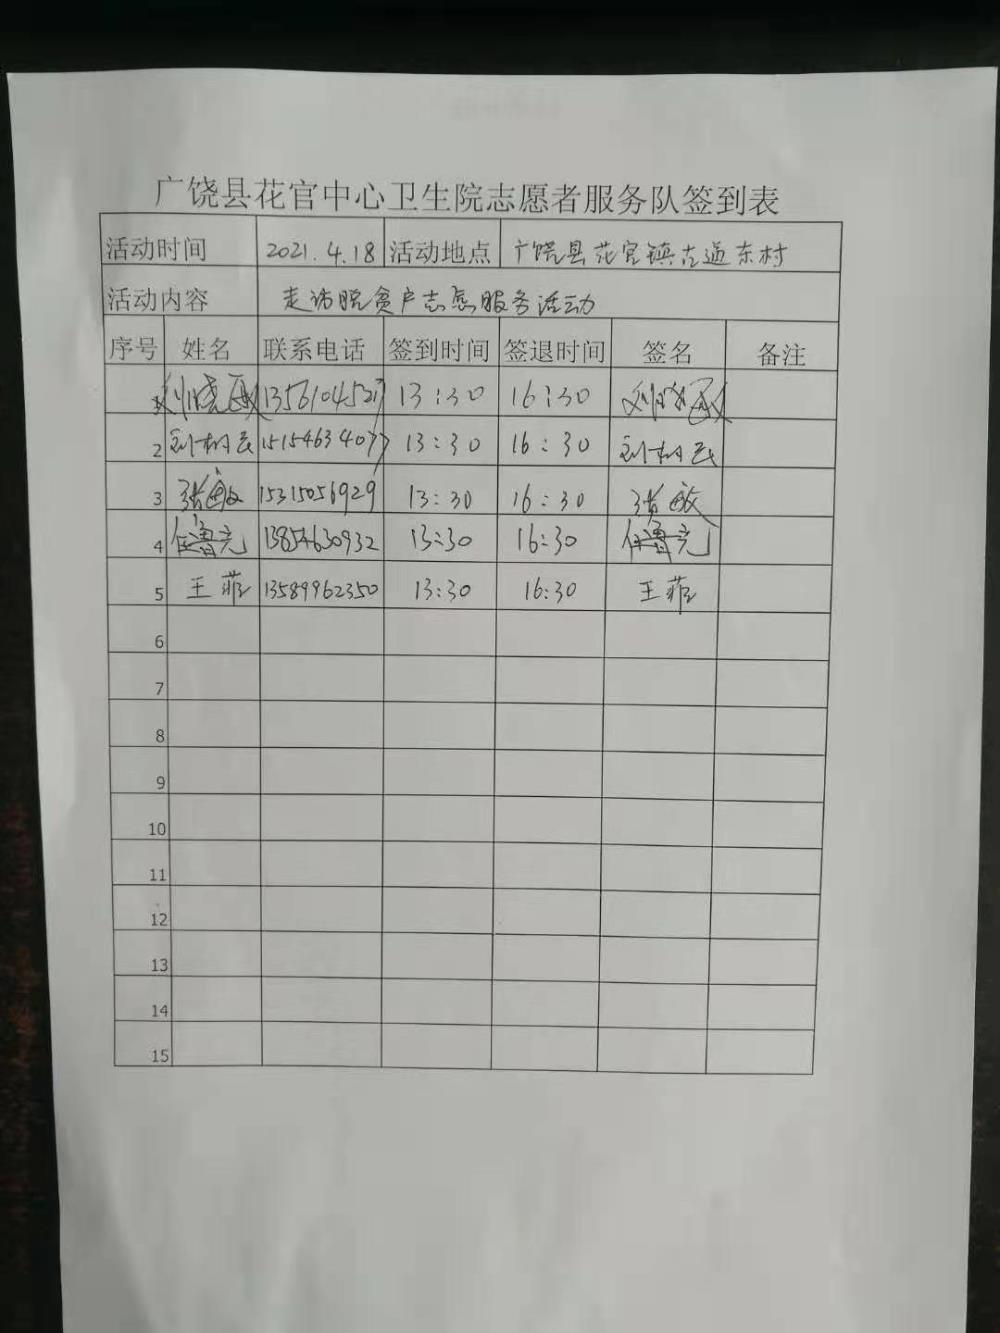 广饶县花官中心卫生院志愿者服务队签到表
活动时间 2021.4.18 活动地点 广饶县花官镇古道东村
活动内容 走访脱贫户志愿服务活动
序号 姓名 联系电话 签到时间 签退时间 签名 备注
1 刘晓敏 13561045217 13:30 16:30 刘晓敏
2 15154634077 13:30 16:30
3 张敏 15315056929 13:30 16:30 张敏
4 任鲁亮 13854630932 13:30 16:30 任鲁亮
5 王菲 13589962350 13:30 16:30 王菲
6
7
8
9
10
11
12
13
14
15